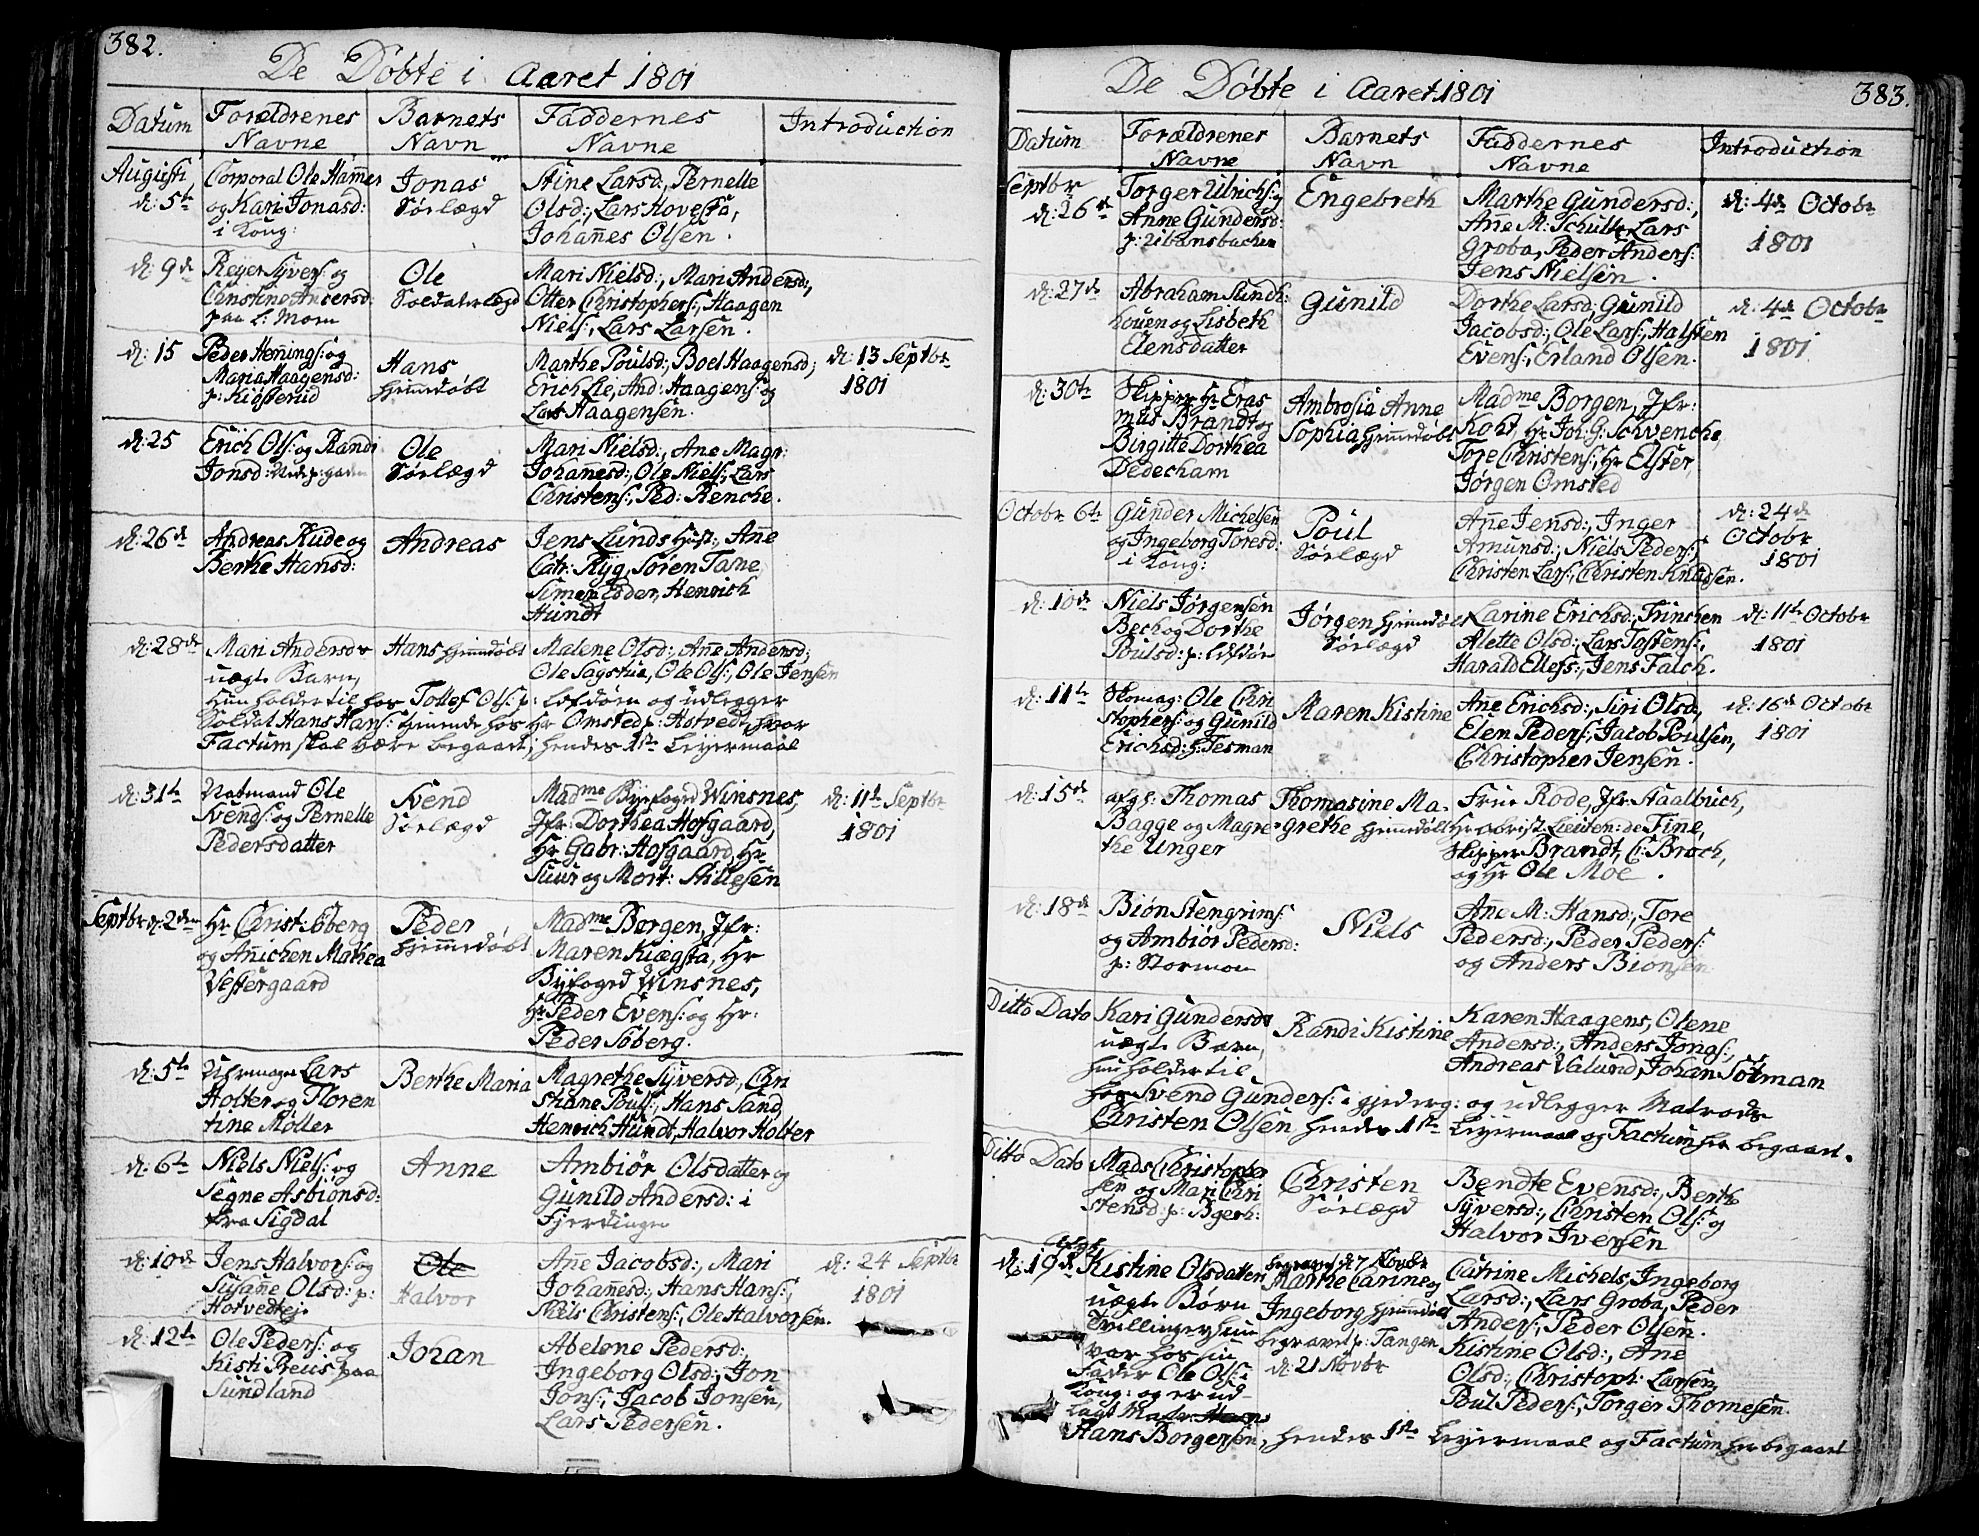 382.
De Döbte i Aaret 1801
Datum
Forældrenes Navne
Barnets Navn
Faddernes Navne
Introduction
Augusti
d: 5te
Corporal Ole Hamer
og Kari Jonasd:
i Kong:
Jonas
Sörlægd
Stine Larsd:, Pernelle
Olsd:, Lars Hovestu,
Johannes Olsen.
d: 9de
Reyer Syvers: og
Christine Andersd:
paa L: Moen
Ole
Soldaterlægd
Mari Nielsd:, Mari Andersd:,
Otter Christophers:, Haagen
Niels:, Lars Larsen.
d: 15
Peder Hennings: og
Maria Haagensd:
p: Kiösterud
Hans
hjemmedöbt
Marthe Poulsd:, Boel Haagensd;
Erich Lie, And: Haagens: og
Lars Haagensen.
d: 13 Septbr
1801
d: 25
Erich Ols: og Randi
Jonsd:
Ole
Sörlægd
Mari Nielsd:, Ane Magr:
Johannesd:, Ole Niels:, Lars
Christens:, Ped: Renche.
d: 26de
Andreas Rude og
Berthe Hansd:
Andreas
Jens Lunds Hust:, Ane
Catr: Ryg, Sören Tame
Simen Eder, Henrich
Hundt
d: 28de
Mari Andersdr
uægte Barn,
Hans hjemmedöbt
Malene Olsd:, Ane Andersd:,
Ole Sagstua, Ole Ols:, Ole Jensen
hun holder til hos Tollef Ols: p: Löfdörn og udlegger
Soldat Hans Hans: tjenende hos Hr Omsted p: Hotvedt, hvor
Factum skal være begaaet, hendes 1ste Leyermaal
d: 31te
Natmand Ole
Svends: og Pernelle
Pedersdatter
Svend
Sörlægd
Madme Byefoged Winsnes,
Jfr: Dorthea Hofgaard,
Hr Gabr: Hofgaard, Hr
Suur og Mort: Stillesen
d: 11te Septbr
1801
Septbr d: 2den
Hr Christ: Söberg
og Anichen Mathea
Vestergaard
Peder
hjemmedöbt
Madme Borgen, Jfr:
Maren Kiægsta, Hr
Byefoged Winsnes,
Hr Peder Evens: og Hr:
Peder Söberg.
d: 5te
Uhrmager Lars
Holter og Floren
tine Möller
Berthe Maria
Magrethe Syversd:, Chri
stiane Pouls:, Hans Sand,
Henrich Hundt, Halvor Holter
d: 6te
Niels Niels: og
Segne Asbiönsd:
fra Sigdal
Anne
Ambiör Olsdatter og
Gunild Andersd: i
Fjerdingen
d: 10de
Jens Halvors: og
Susanne Olsd: p:
Hotvedtej.
Ole
Halvor
Ane Jacobsd:, Mari
Johannesd:, Hans Hans:,
Niels Christens:, Ole Halvorsen.
d: 24 Septbr
1801
d: 12te
Ole Peders: og
Kisti Preus paa
Sundland
Johan
Abelone Pedersd:,
Ingeborg Olsd:, Jon
Jons:, Jacob Jonsen,
Lars Pedersen.
383.
De Döbte i Aaret 1801
Datum
Forældrenes Navne
Barnets Navn
Faddernes Navne
Introduction
Septbr
d: 26de
Torger Ulrichs: og
Anne Gundersd:
p: Albansbachen
Engebreth
Marthe Gundersd:,
Ane M: Schult, Lars
Groba, Peder Anders:
Jens Nielsen.
d: 4de Octobr
1801
d: 27de
Abraham Sundh:
houen og Lisbeth
Elensdatter
Gunild
Dorthe Larsd:, Gunild
Jacobsd:, Ole Lars:, Halsten
Evens:, Erland Olsen.
d: 4de Octobr
1801
d: 30te
Skipper Hr Eras
mus Brandt og
Birgitte Dorthea
Dedecham
Ambrosia Anne
Sophia hjemmedöbt
Madme Borgen, Jfr:
Koht, Hr Joh: G: Schvencke,
Tore Christens:, Hr Elster,
Jörgen Omsted
Octobr 6te
Gunder Michelsen
og Ingeborg Toresd:
i Kong:
Poul
Sörlægd
Ane Jensd:, Inger
Amunsd:, Niels Peders:,
Christen Lars:, Christen Knudsen.
d: 24de
Octobr
1801
d: 10de
Niels Jörgensen
Bech og Dorthe
Poulsd: p: Löfdör
Jörgen hjemmedöbt
Sörlægd
Larine Erichsd:, Trinchen
Alette Olsd:, Lars Tostens:,
Harald Elefs:, Jens Falch.
d: 11te Octobr
1801
d: 11te
Skomag: Ole Chri
stophers: og Gunild
Erichsd: p: Tesman
Maren Kistine
Ane Erichsd:, Siri Olsd,
Elen Peders:, Jacob Poulsen,
Christopher Jensen.
d: 16de Octobr
1801
d: 15de
afg: Thomas
Bagge og Magre-
the Unger
Thomasine Ma-
grethe hjemmedöbt
Frue Rode, Jfr Staalbuch,
Hr obrist Lieuten: de Fine,
Skipper Brandt, C: Broch,
og Hr Ole Moe.
d: 18de
Biön Stengrims:
og Ambiör Pedersd:
p: Stormoen
Niels
Ane M: Hansd:, Tore
Pedersd:, Peder Peders:
og Anders Biönsen
Ditto Dato
Kari Gundersdr
uægte Barn,
hun holder til
Randi Kistine
Karen Haagens, Olene
Andersd:, Anders Jonas:,
Andreas Valund, Johan Totman
hos Svend Gunders: i gjederg: og udlegger Matrods
Christen Olsen hendes 1ste Leyermaal og Factum her begaaet.
Ditto Dato
Mads Christopher
sen og Mari Chri
stensd: p: Bgerh:
Christen
Sörlægd
Bendte Evensd:, Berthe
Syversd:, Christen Ols: og
Halvor Iversen
d: 19de
Kistine Olsdatters
uægte Börn
Tvillinger, hun
var hos sin
Fader Ole Ols: i
Kong: og er ud-
lagt Matr:
Hans Borgersen, hendes 1ste Leyermaal og Factum her begaaet
begravet d 7 Novbr
Marthe Carine og
Ingeborg hjemmedöbt
begravet p: Tangen
d: 21 Novbr
Catrine Michels, Ingeborg
Larsd:, Lars Groba, Peder
Anders:, Peder Olsen.
Kistine Olsd:, Ane
Olsd:, Christoph: Larsen,
Poul Peders:, Torger Thomesen.